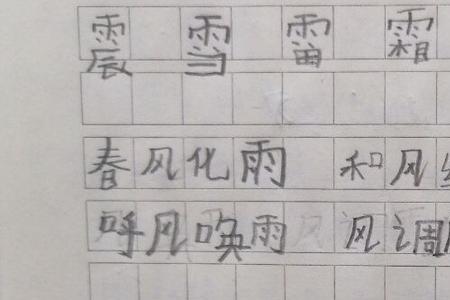 震 雪 雷 霜
春风化雨 和风
呼风唤雨 风调